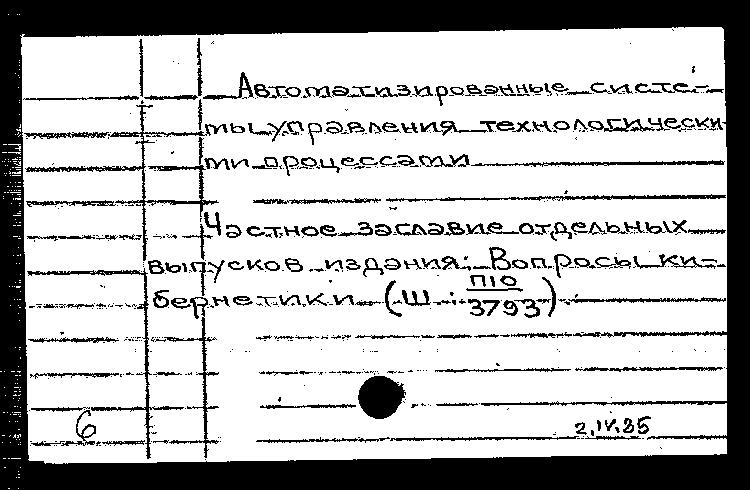 Автоматизированные систе-
мы управления технологически-
ми процессами
Частное заглавие отдельных
выпусков издания: Вопросы ки-
бернетики (Ш: П10/3793).
6
2.IV.85